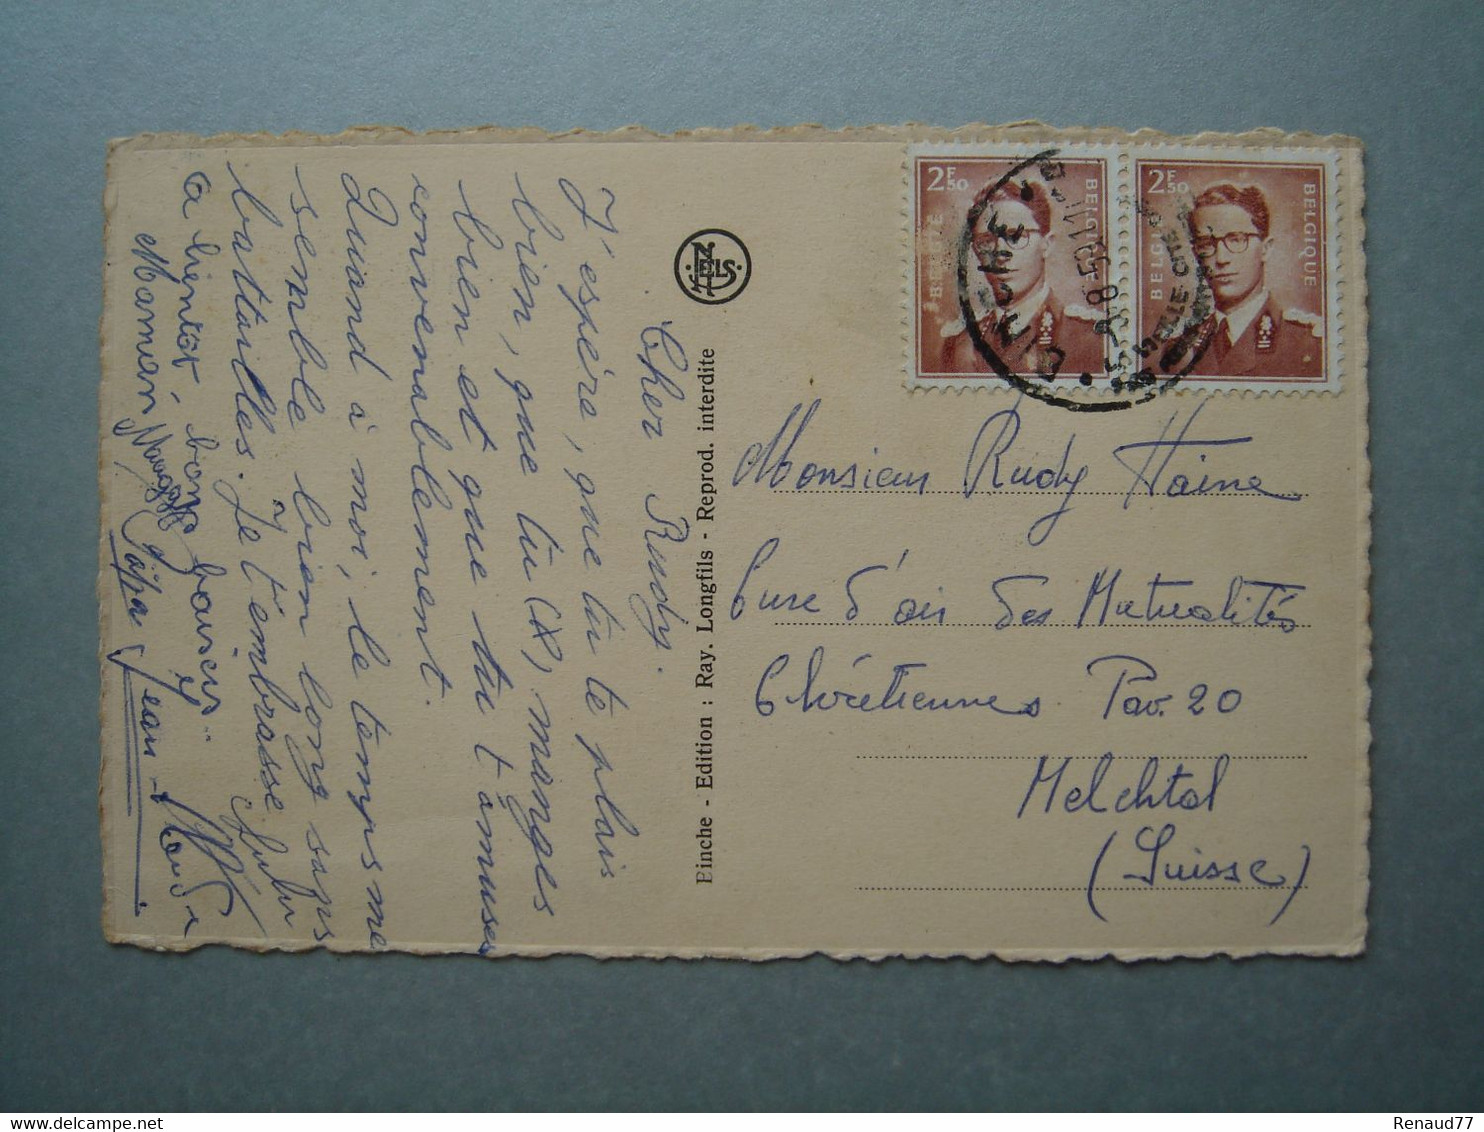 Cher Rudy.
J'espère, que tu te plais
bien, que tu (X) manges
bien et que tu t'amuses
convenablement.
Quand à moi, le temps me
semble bien long sans
batailles. Je t'embrasse
à bientôt, bons baisers
Maman Papa Jean-
NELS
Einche - Edition : Ray. Longfils - Reprod. interdite
2F50 BELGIE BELGIQUE
2F50 BELGIE BELGIQUE
8.59
VIEILLE CITE
Monsieur Rudy Haine
Cure d'air des Mutualités
Chrétiennes Pav. 20
Melchtal
(Suisse)
Renaud77
delcampe.net